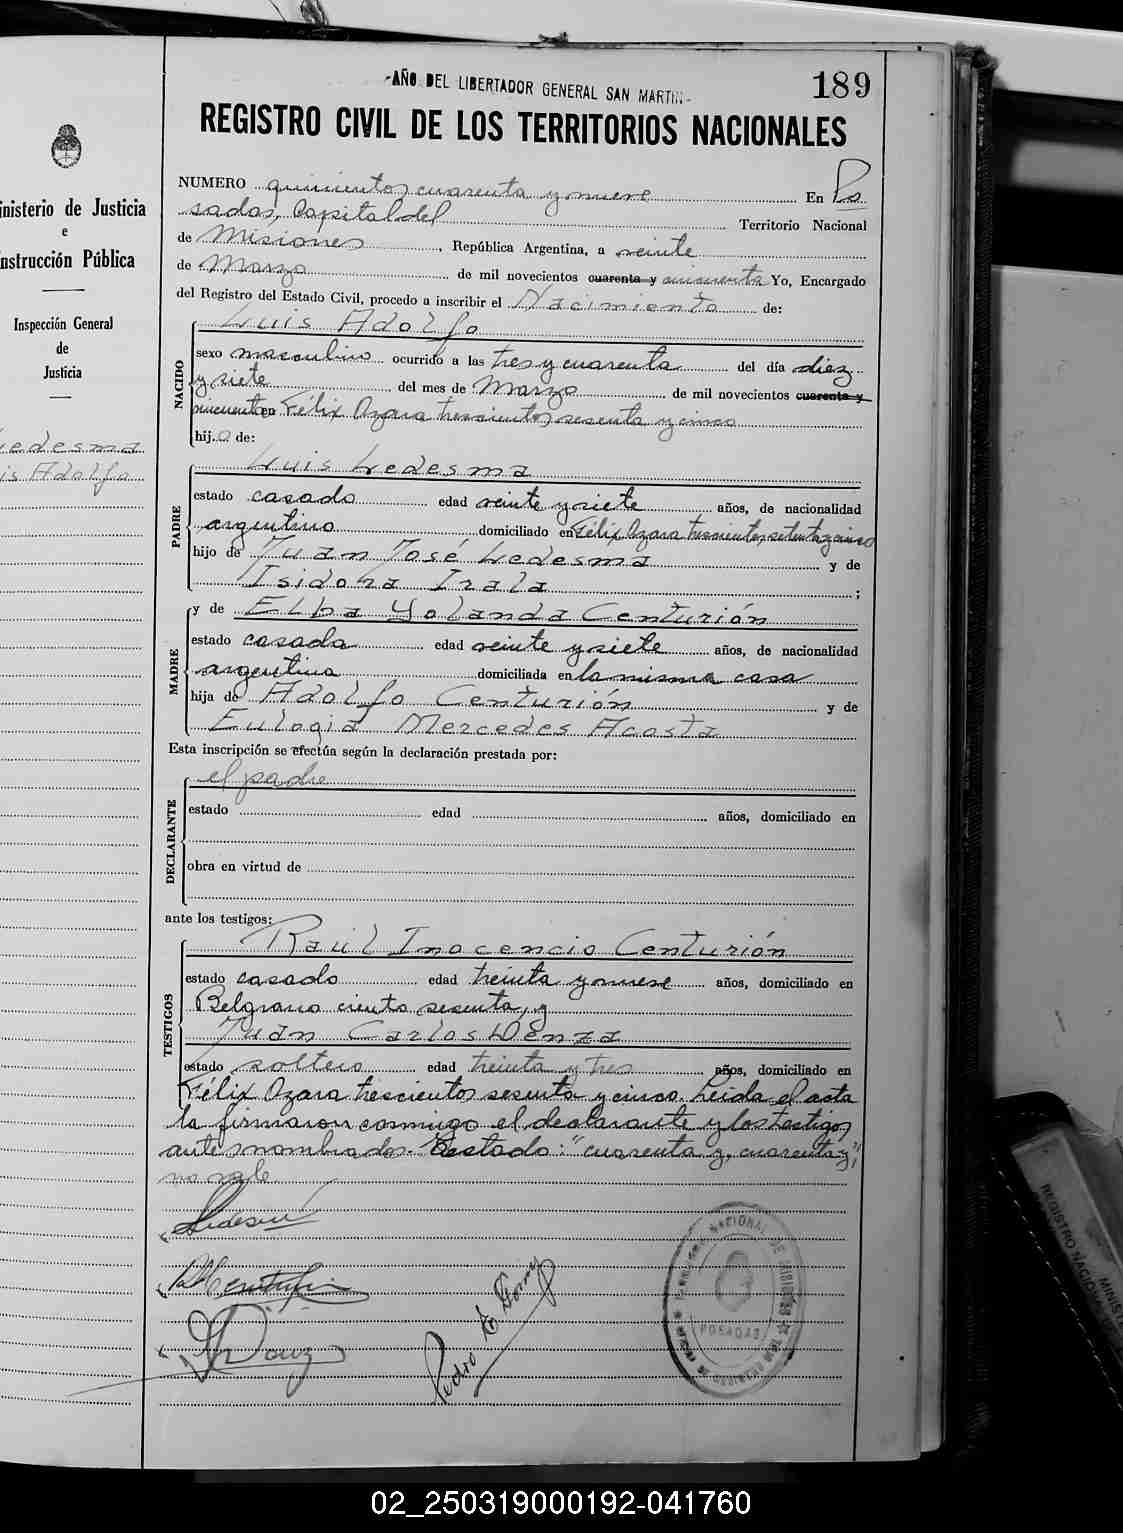 -AÑO DEL LIBERTADOR GENERAL SAN MARTIN-
189
REGISTRO CIVIL DE LOS TERRITORIOS NACIONALES
inisterio de Justicia
e
nstrucción Pública
Inspección General
de
Justicia
Ledesma
is Adolfo
NUMERO quinientos cuarenta y nueve En Po
sadas, Capital del Territorio Nacional
de Misiones, República Argentina, a veinte
de Marzo de mil novecientos cuarenta y cincuenta Yo, Encargado
del Registro del Estado Civil, procedo a inscribir el Nacimiento de:
NACIDO
Luis Adolfo
sexo masculino ocurrido a las tres y cuarenta del día diez
y siete del mes de Marzo de mil novecientos cuarenta y
cincuenta en Félix Azara trescientos sesenta y cinco
hijo de:
PADRE
Luis Ledesma
estado casado edad veinte y siete años, de nacionalidad
argentino domiciliado en Félix Azara trescientos setenta y cinco
hijo de Juan José Ledesma y de
Isidora Irala;
MADRE
y de Elba Yolanda Centurión
estado casada edad veinte y siete años, de nacionalidad
argentina domiciliada en la misma casa
hija de Adolfo Centurión y de
Eulogia Mercedes Acosta
Esta inscripción se efectúa según la declaración prestada por:
DECLARANTE
el padre
estado edad años, domiciliado en
obra en virtud de
ante los testigos:
TESTIGOS
Raúl Inocencio Centurión
estado casado edad treinta y nueve años, domiciliado en
Belgrano ciento sesenta, y
Juan Carlos Denza
estado soltero edad treinta y tres años, domiciliado en
Félix Azara trescientos sesenta y cinco. Leida el acta
la firmaron conmigo el declarante y los testigos
antes nombrados. Testado: "cuarenta y, cuarenta y",
no vale
Ledesma
Pedro E.
NACIONAL DE MISIONES
POSADAS
REGISTRO NACIONAL
MINIST
02_250319000192-041760